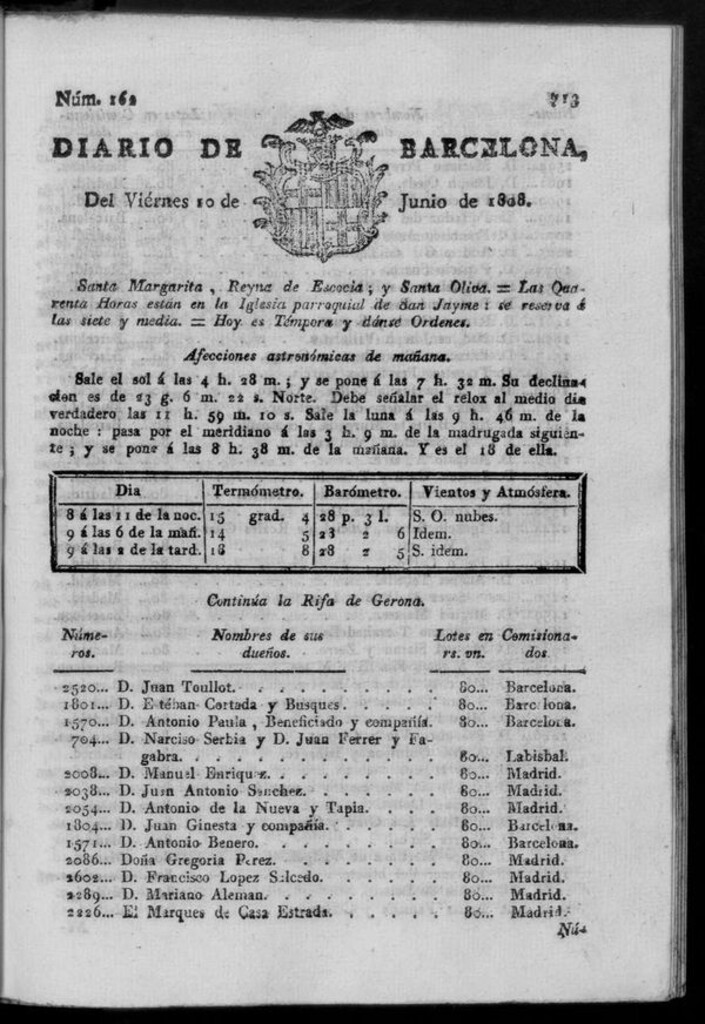 Núm. 162 713
DIARIO DE BARCELONA,
Del Viérnes 10 de Junio de 1808.
Santa Margarita, Reyna de Escocia; y Santa Oliva. = Las Qua-
renta Horas están en la Iglesia parroquial de San Jayme: se reserva á
las siete y media. = Hoy es Témpora y danse Ordenes.
Afecciones astronómicas de mañana.
Sale el sol á las 4 h. 28 m.; y se pone á las 7 h. 32 m. Su declina-
cion es de 23 g. 6 m. 22 s. Norte. Debe señalar el relox al medio dia
verdadero las 11 h. 59 m. 10 s. Sale la luna á las 9 h. 46 m. de la
noche: pasa por el meridiano á las 3 h. 9 m. de la madrugada siguien-
te; y se pone á las 8 h. 38 m. de la mañana. Y es el 18 de ella.
Dia Termómetro. Barómetro. Vientos y Atmósfera.
8 á las 11 de la noc. 15 grad. 4 28 p. 3 l. S. O. nubes.
9 á las 6 de la mañ. 14 5 28 2 6 Idem.
9 á las 2 de la tard. 18 8 28 2 5 S. idem.
Continúa la Rifa de Gerona.
Núme- Nombres de sus Lotes en Comisiona-
ros. dueños. rs. vn. dos.
2520... D. Juan Toullot. . . . . . . . . . 80... Barcelona.
1801... D. Estéban Cortada y Busques. . . . . 80... Barcelona.
1570... D. Antonio Paula, Beneficiado y compañía. 80... Barcelona.
704... D. Narciso Serbia y D. Juan Ferrer y Fa-
gabra. . . . . . . . . . . . 80... Labisbal.
2008... D. Manuel Enriquez. . . . . . . . . 80... Madrid.
2038... D. Juan Antonio Sanchez. . . . . . . 80... Madrid.
2054... D. Antonio de la Nueva y Tapia. . . . 80... Madrid.
1804... D. Juan Ginesta y compañía. . . . . . 80... Barcelona.
1571... D. Antonio Benero. . . . . . . . . 80... Barcelona.
2086... Doña Gregoria Perez. . . . . . . . 80... Madrid.
2602... D. Francisco Lopez Salcedo. . . . . . 80... Madrid.
2289... D. Mariano Aleman. . . . . . . . . 80... Madrid.
2226... El Marques de Casa Estrada. . . . . . 80... Madrid.
Nú-